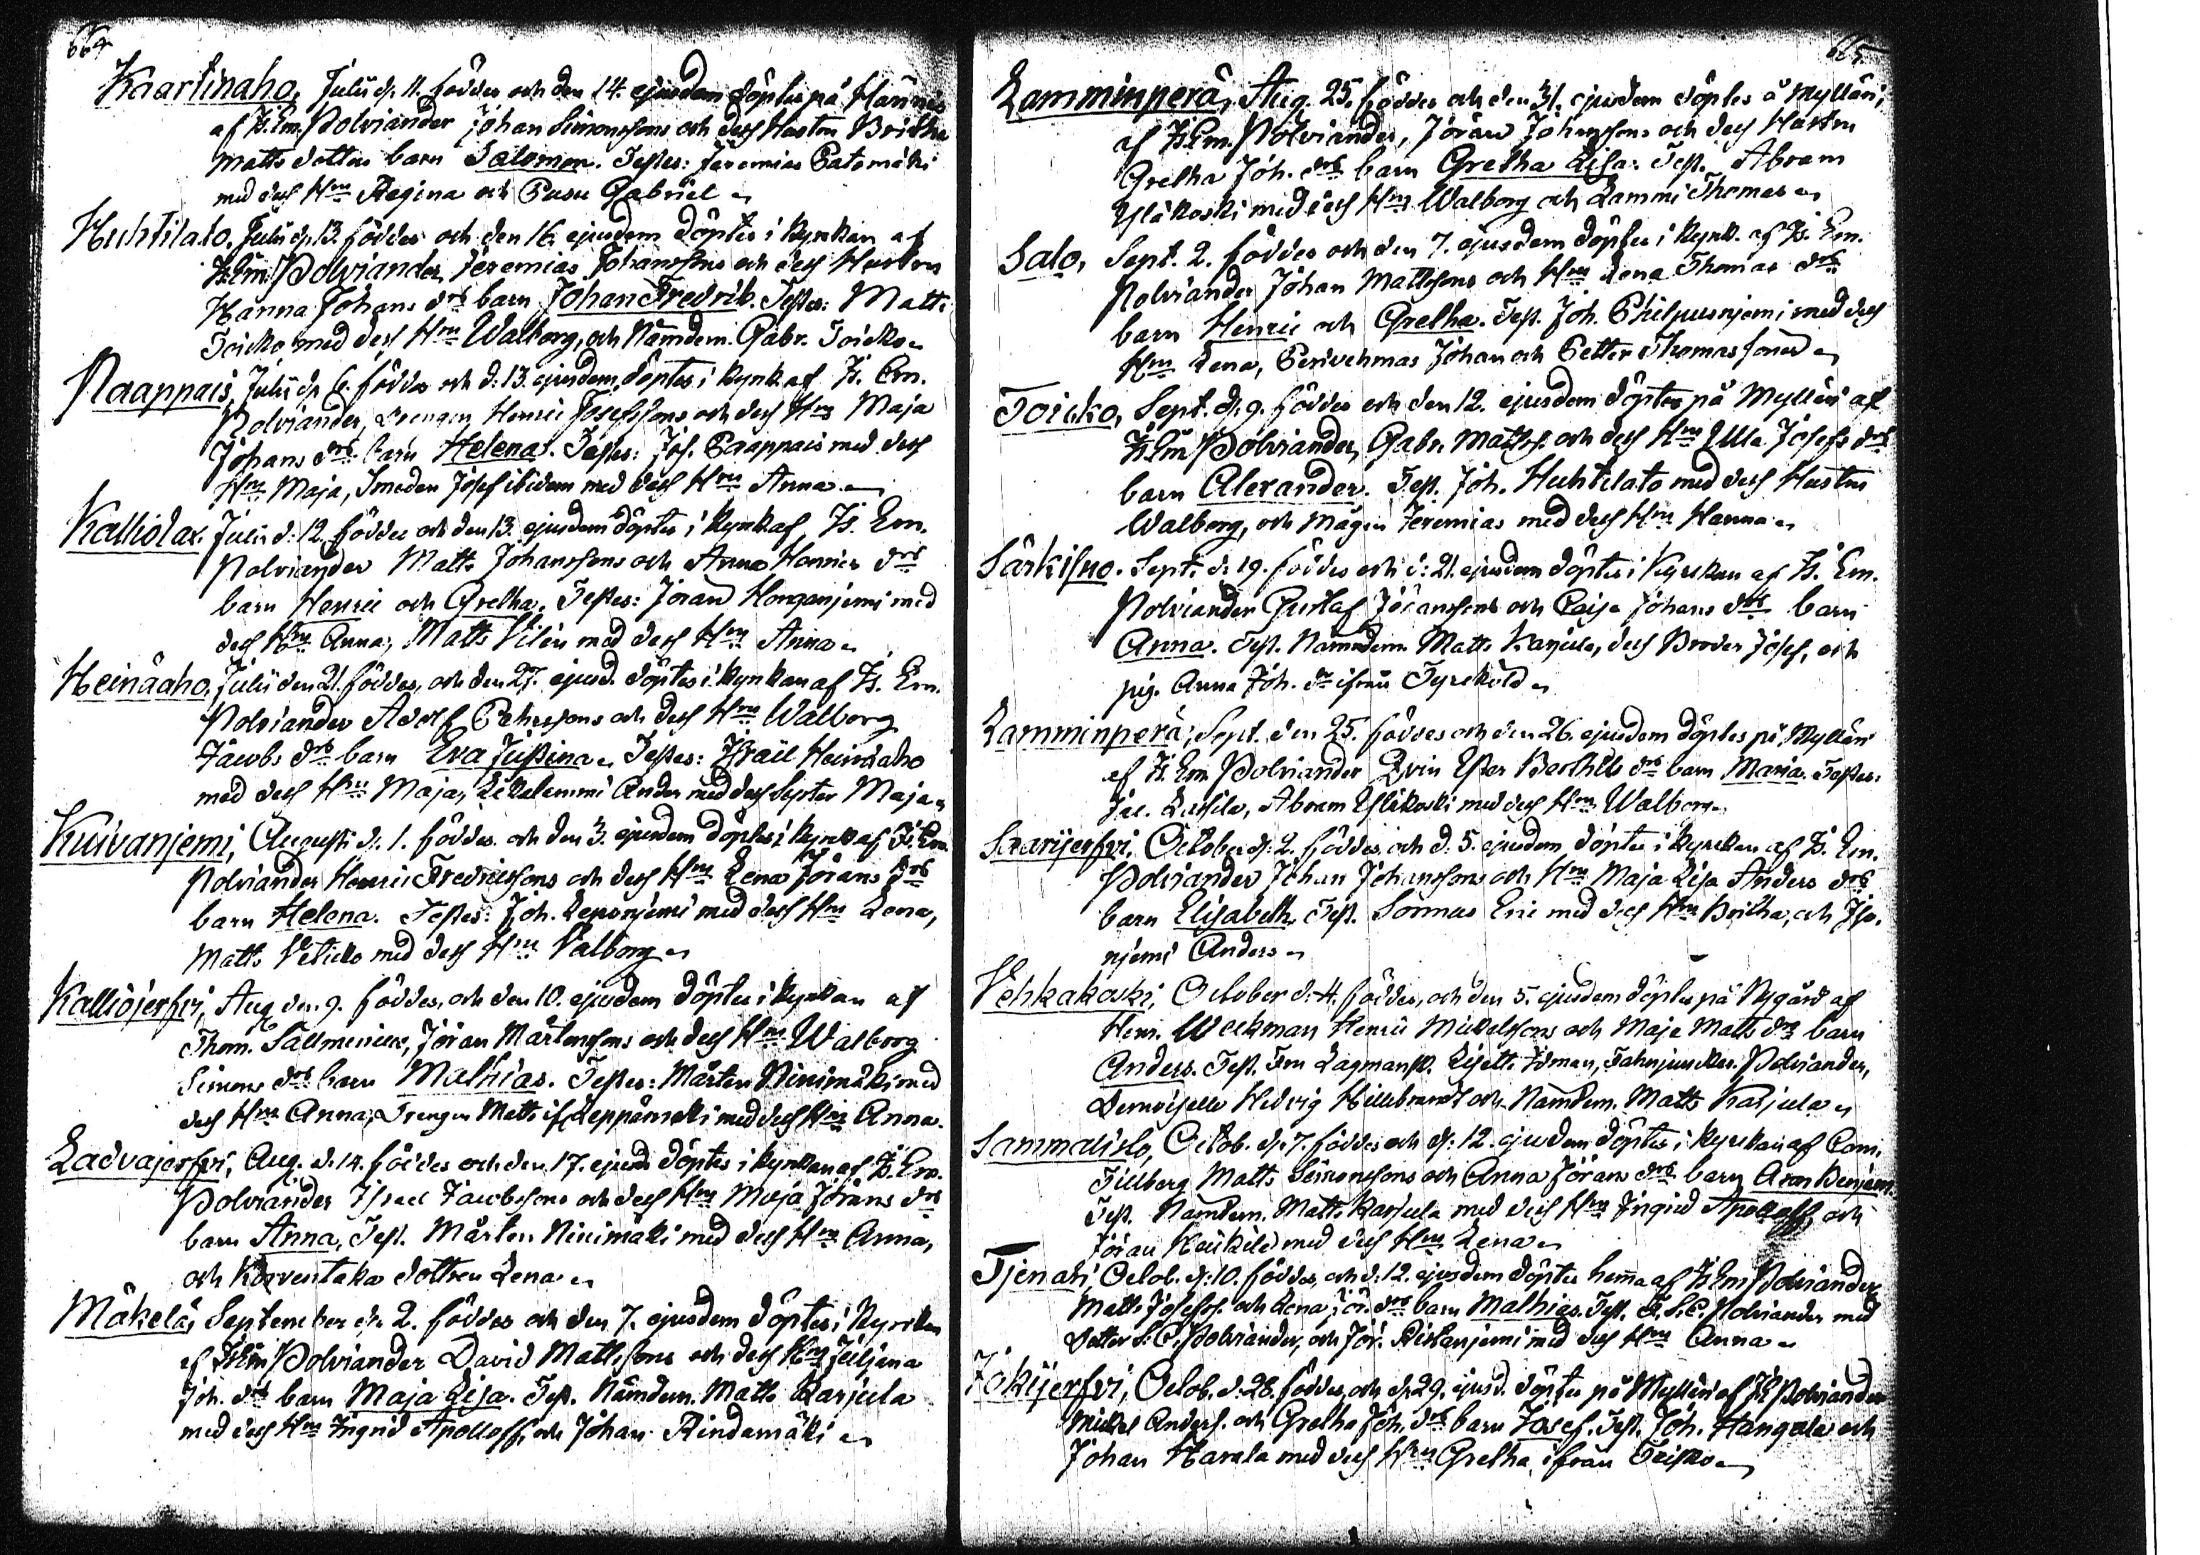 664
Kaartinaho, Julii d. 11. föddes och den 14. ejusdem döptes på Hännis
af H. Em. Polviander Johan Simonssons och dess Hustru Britha
Matts dotters barn Salomon. Testes: Jeremias Patomäki
med dess Hru Regina och Pusu Gabriel
Huhtilato, Julii d. 13. föddes och den 16. ejusdem döptes i kyrkan af
H. Em. Polviander Jeremias Johanssons och dess Hustru
Hanna Johans drs barn Johan Fredrik. Testes: Matts
Toicko med dess Hru Walborg, och Nämdem. Gabr. Toicko
Paappais, Julii d. 6. föddes och d: 13. ejusdem döptes i kyrk. af H. Em.
Polviander, Drengen Henric Josefssons och dess Hru Maja
Johans drs barn Helena. Testes: Jos. Paappais med dess
Hru Maja, Smeden Josef ibidem med dess Hru Anna
Kalliolax. Julii d: 12. föddes och den 13. ejusdem döptes i kyrk af H. Em.
Polviander Matts Johanssons och Anna Henrics drs
barn Henric och Gretha. Testes: Jöran Honganjemi med
dess Hru Anna, Matts Vilén med dess Hru Anna
Heinäaho, Julii den 21. föddes, och den 27. ejusd. döptes i kyrkan af H. Em.
Polviander Adolf Petterssons och dess Hru Walborg
Jacobs drs barn Eva Justina. Testes: Israël Heinäaho
med dess Hru Maja, Anders med dess Syster Maja
Kuivanjemi, Augusti d. 1. föddes och den 3. ejusdem döptes i kyrk af H. Em.
Polviander Henric Fredricssons och dess Hru Lena Jörans drs
barn Helena. Testes: Joh. Leponjemi med dess Hru Lena,
Matts Veticko med dess Hru Valborg
Kalliojerfvi, Aug. den 9. föddes, och den 10. ejusdem döptes i kyrkan af
Thom. Sallmenius, Jöran Mårtenssons och dess Hru Walborg
Simons drs barn Mathias. Testes: Mårten Ninimäki med
dess Hru Anna, Drengen Matts if. Leppämäki med dess Hru Anna.
Ladvajerfvi, Aug. d. 14. föddes och den 17. ejusd. döptes i kyrkan af H. Em.
Polviander Israel Jacobssons och dess Hru Maja Jörans drs
barn Anna, Test. Mårten Ninimäki med dess Hru Anna,
och Korventaka dottren Lena
Mäkelä, September d. 2. föddes och den 7. ejusdem döptes i Kyrckan
af H. Em. Polviander David Mattssons och dess Hru Juljana
Joh. drs barn Maja Lisa. Test. Nämdem. Matts Karjula
med dess Hru Ingrid Apolloff, och Johan Rindamäki
665
Lamminperä, Aug. 25. föddes och den 31. ejusdem döptes å Mylläri,
af H. Em. Polviander, Jöran Johanssons och dess Hustru
Gretha Joh. drs barn Gretha Lisa. Test. Abram
Yläkoski med dess Hru Walborg och Lammi Thomas
Salo, Sept. 2. föddes och den 7. ejusdem döptes i kyrk. af H. Em.
Polviander Johan Mattssons och Hru Lena Thomas drs
barn Henric och Gretha. Test. Joh. Philpusnjemi med dess
Hru Lena, Johan och Petter Thomas söner
Toicko, Sept. d. 9. föddes och den 12. ejusdem döptes på Mylläri af
H. Em. Polviander, Gabr. Matss. och dess Hru Ulla Josefs drs
barn Alexander. Test. Joh. Huhtilato med dess Hustru
Walborg, och mågen Jeremias med dess Hru Hanna
Särkisuo. Sept. d. 19. föddes och d: 21. ejusdem döptes i Kyrckan af H. Em.
Polviander Gustaf Jöranssons och Caisa Johans drs barn
Anna. Test. Nämndem. Matts Karjula, dess Broder Josef, och
pig. Anna Joh. dr ifrån Tyrckölä
Lamminperä, Sept. den 25. föddes och den 26. ejusdem döptes på Mylläri
af H. Em. Polviander Qvin Ester Berthils drs barn Maria. Testes:
Jac. Abram Yläkoski med dess Hru Walborg
Saarijerfvi, October d. 2. föddes och d. 5. ejusdem döptes i kyrckan af H. Em.
Polviander Johan Johanssons och Hru Maja Lisa Anders drs
barn Elisabeth. Test. Sonnus Eric med dess Hru Britha, och Iso-
njemi Anders
Vehkakoski, October d. 4. föddes, och den 5. ejusdem döptes på Nygård af
Henr. Weckman Henric Mickelssons och Maja Matts drs barn
Anders. Test. Fru Lagmansk. Lisette Idman, Fahnjunckar. Polviander,
Demoiselle Hedvig Hillebrandt och Nämdem. Matts Karjula
Sammalisto, Octob. d. 7. föddes och d. 12. ejusdem döptes i kyrckan af Com.
Tillberg Matts Simonssons och Anna Jörans drs barn Aron Benjam.
Test. Nämdem. Matts Karjula med dess Hru Ingrid Apolloff, och
Jöran Heickilä med dess Hru Lena
Tjenari Octob. d: 10. föddes, och d: 12. ejusdem döptes hema af H. Em. Polviander
Matts Josefss. och Lena Jör. drs barn Mathias. Test. F. S. C. Polviander med
Dotter S. C. Polviander, och Jör. Ristanjemi med dess Hru Anna
Jokijerfvi, Octob. d. 28. föddes, och d. 29. ejusd. döptes på Mylläri af H. E. Polviander
Mickel Anderss. och Gretha Joh. drs barn Josef. Test. Joh. Hangala och
Johan Harala med dess Hru Gretha ifrån Teisko